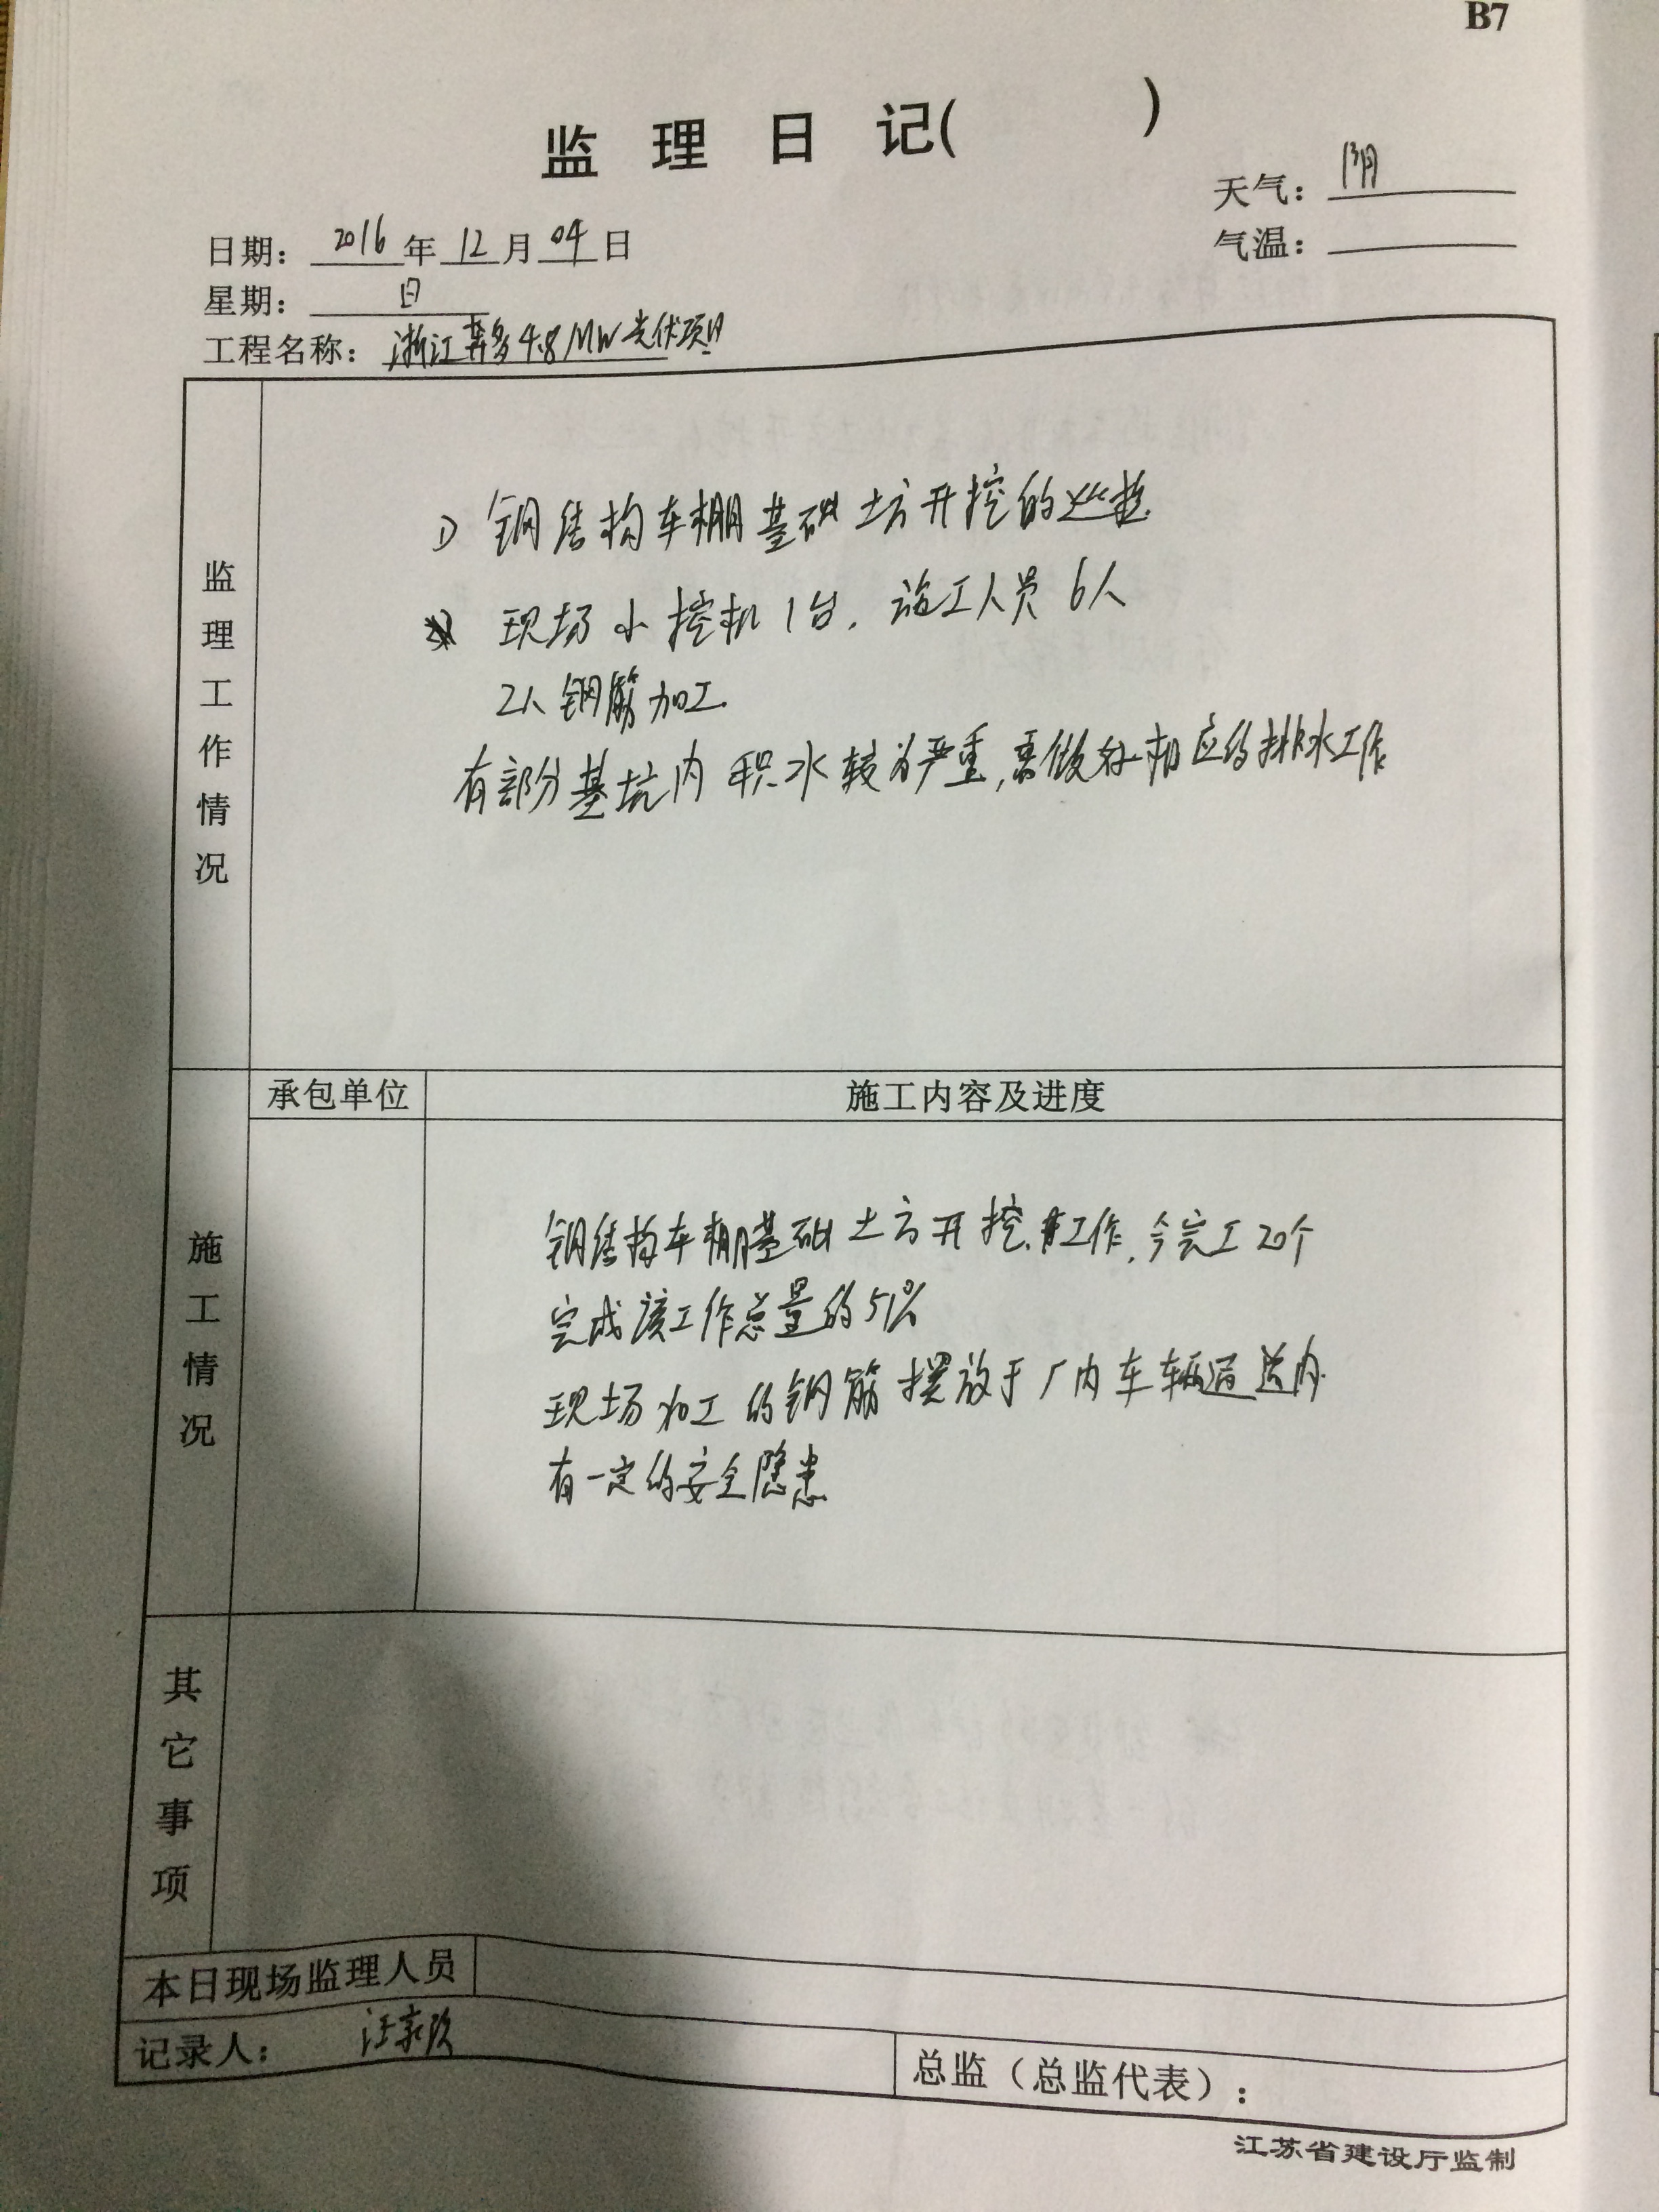 B7
监理日记(　　)
天气：阴
日期：2016年12月04日
气温：
星期：日
工程名称：浙江奔多4.8MW光伏项目
监理工作情况
1) 钢结构车棚基础土方开挖的巡检
现场小挖机1台，施工人员6人
2人钢筋加工
有部分基坑内积水较为严重，需做好相应的排水工作
承包单位
施工内容及进度
施工情况
钢结构车棚基础土方开挖工作，今完工20个
完成该工作总量的51%
现场加工的钢筋摆放于厂内车辆通道内
有一定的安全隐患
其它事项
本日现场监理人员
记录人：
总监（总监代表）：
江苏省建设厅监制